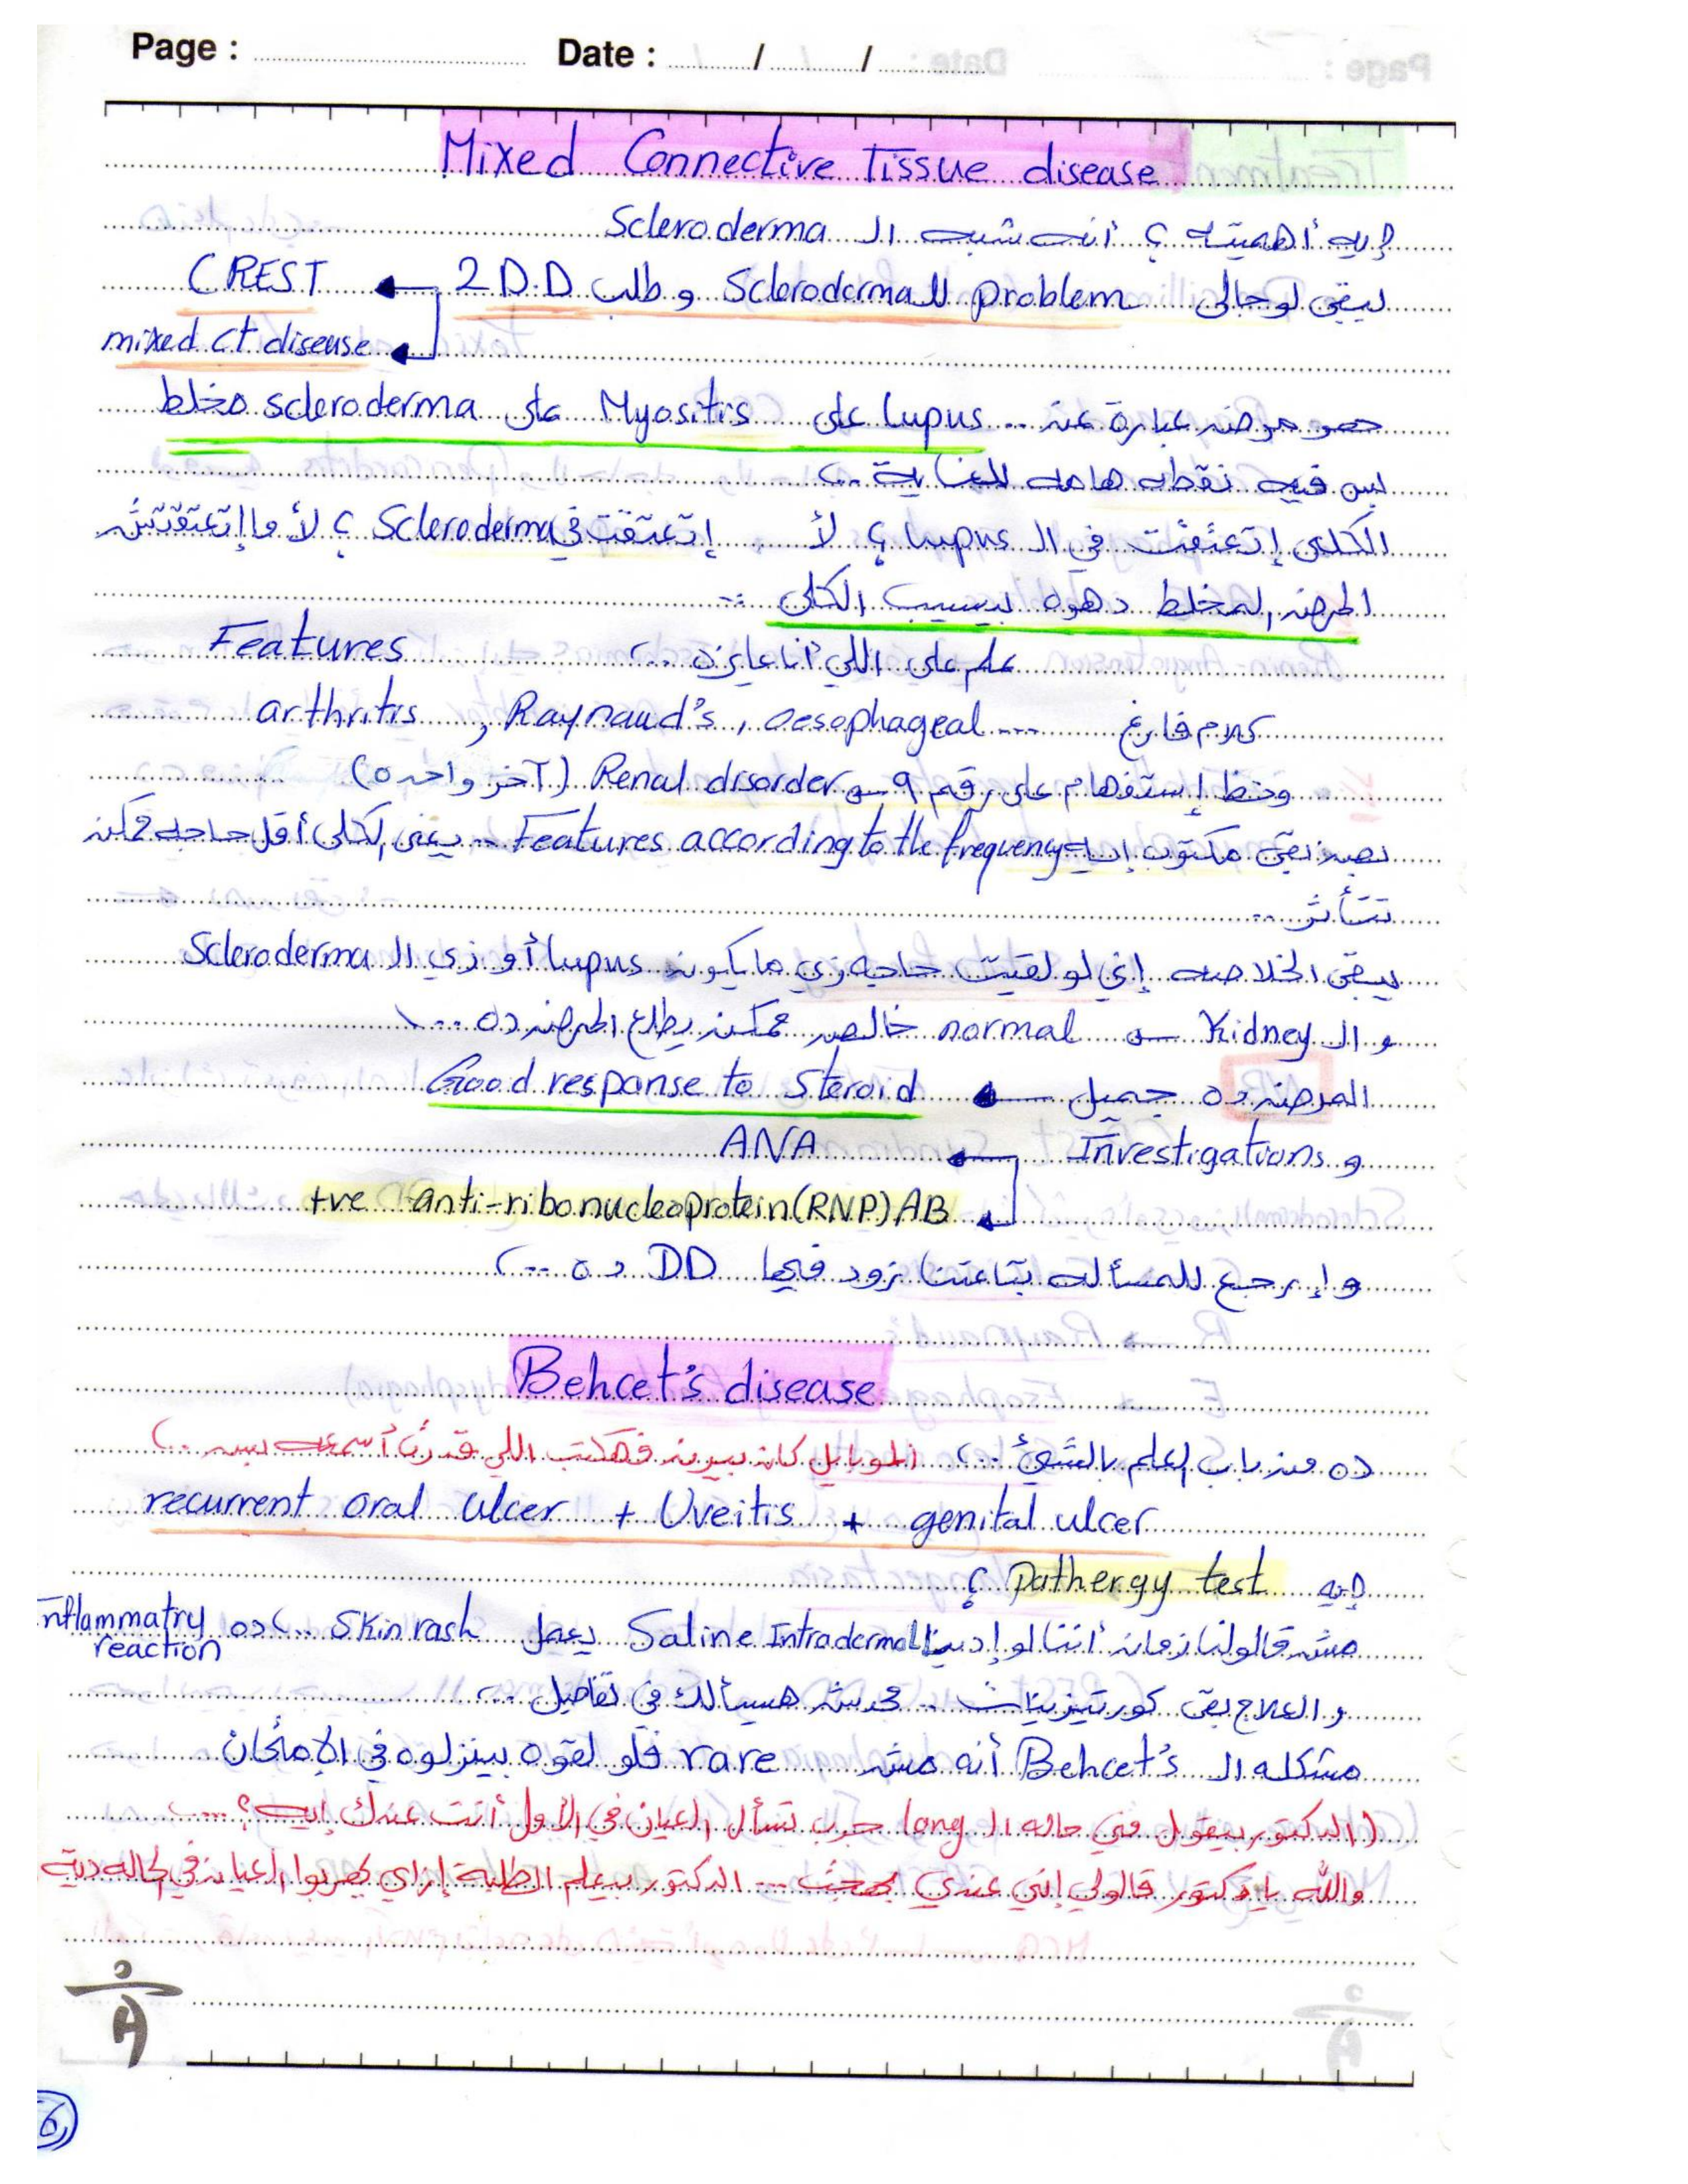 Page : Date : / /
Mixed Connective Tissue disease
إيه أهميته ؟ أنه شبه الـ Scleroderma
يبقى لو جالي problem للـ Scleroderma و طلب 2 D.D ← CREST
mixed ct disease
هو مرض عبارة عن .. lupus على Myositis على scleroderma مخلط
بس فيه نقطه هامه للغاية ..
الكلى إتعتقت في الـ lupus ؟ لأ إتعتقت في Scleroderma ؟ لأ ما إتعتقتش
المرض المخلط دهوه بيسيب الكلى ..
علم على اللي أنا عايزه .. Features
arthritis , Raynaud's , oesophageal .... كلام فارغ
وحط إستفهام على رقم ٩ → Renal disorder (آخر واحده)
بقى مكتوب إيه Features according to the frequency .. يعنى الكلى أقل حاجه ممكن
تتأثر ..
يبقى الخلاصه إني لو لقيت حاجه زي ما يكون lupus أو زي الـ Scleroderma
و الـ Kidney → normal خالص ممكن يطلع المرض ده ...
المرض ده جميل ← Good response to Steroid
و Investigations ← ANA
+ve anti-ribonucleoprotein (RNP) AB
و إرجع للمسأله بتاعتنا زود فيها DD ده ..
Behcet's disease
ده من باب العلم بالشئ .. الموبايل كان بيرن فهكتب اللي قدرت أسمعه بس ..
recurrent oral ulcer + Uveitis + genital ulcer
إيه pathergy test ؟
مش قالولنا زمان أننا لو إدينا Saline Intradermal يعمل Skin rash .. ده inflammatry reaction
و العلاج بقى كورتيزونات .. محدش هيسألك في تفاصيل ..
مشكله الـ Behcet's أنه مش rare فلو لقوه بينزلوه في الإمتحان
(الدكتور بيقول في حاله الـ long جرب تسأل العيان في الأول أنت عندك إيه ؟ ...
والله يا دكتور قالولي إني عندي بهجت ... الدكتور بيعلم الطلبة إزاي العيان في الحاله ديه
6